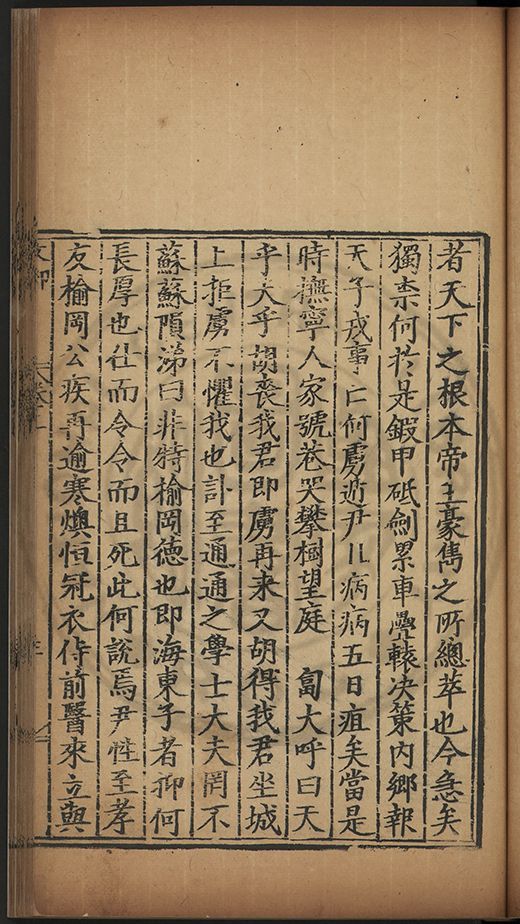 者天下之根本帝王豪雋之所總萃也今急矣
獨柰何於是鍛甲砥劍累車疊轅决策内鄉報
天子戎事亡何虜遁尹以病病五日疽矣當是
時撫寧人家號巷哭攀櫬望庭匐大呼曰天
乎天乎胡喪我君即虜再来又胡得我君坐城
上拒虜不懼我也訃至通通之學士大夫罔不
蘇蘇隕涕曰非特榆岡德也即海東子者抑何
長厚也仕而令令而且死此何說焉尹性至孝
友榆岡公疾再逾寒燠恒冠衣侍前醫來立輿